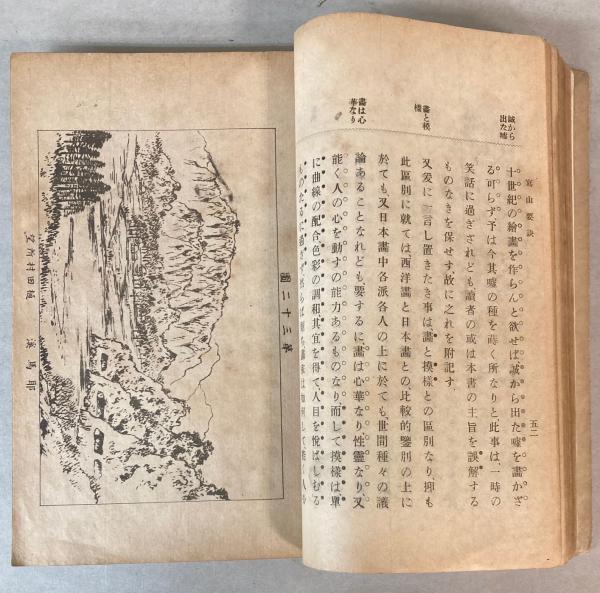 寫山要訣
五二
誠から
出た噓
畫と模
樣
畫は心
華なり
十世紀の繪畫を作らんと欲せば誠から出た噓を畫かざ
る可らず予は今其噓の種を蒔く所なりと此事は、一時の
笑話に過ぎざれども讀者の或は本書の主旨を誤解する
ものなきを保せず、故に之れを附記す、
又爰に一言し置きたき事は畫と模樣との區別なり、抑も
此區別に就ては、西洋畫と日本畫との比較的鑒別の上に
於ても、又日本畫中各派各人の上に於ても、世間種々の議
論あることなれども、要するに畫は心華なり性靈なり又
能く人の心を動すの能力あるものなり、而して模樣は單
に曲線の配合色彩の調和其宜を得て、人目を悅ばしむる
第三十二圖
耶馬溪
樋田村所望